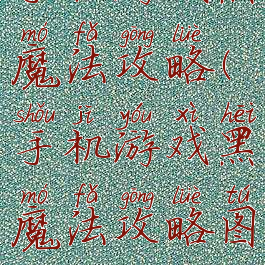 mó fǎ gōng lüè
魔法攻略(
shǒu jī yóu xì hēi
手机游戏黑
mó fǎ gōng lüè tú
魔法攻略图